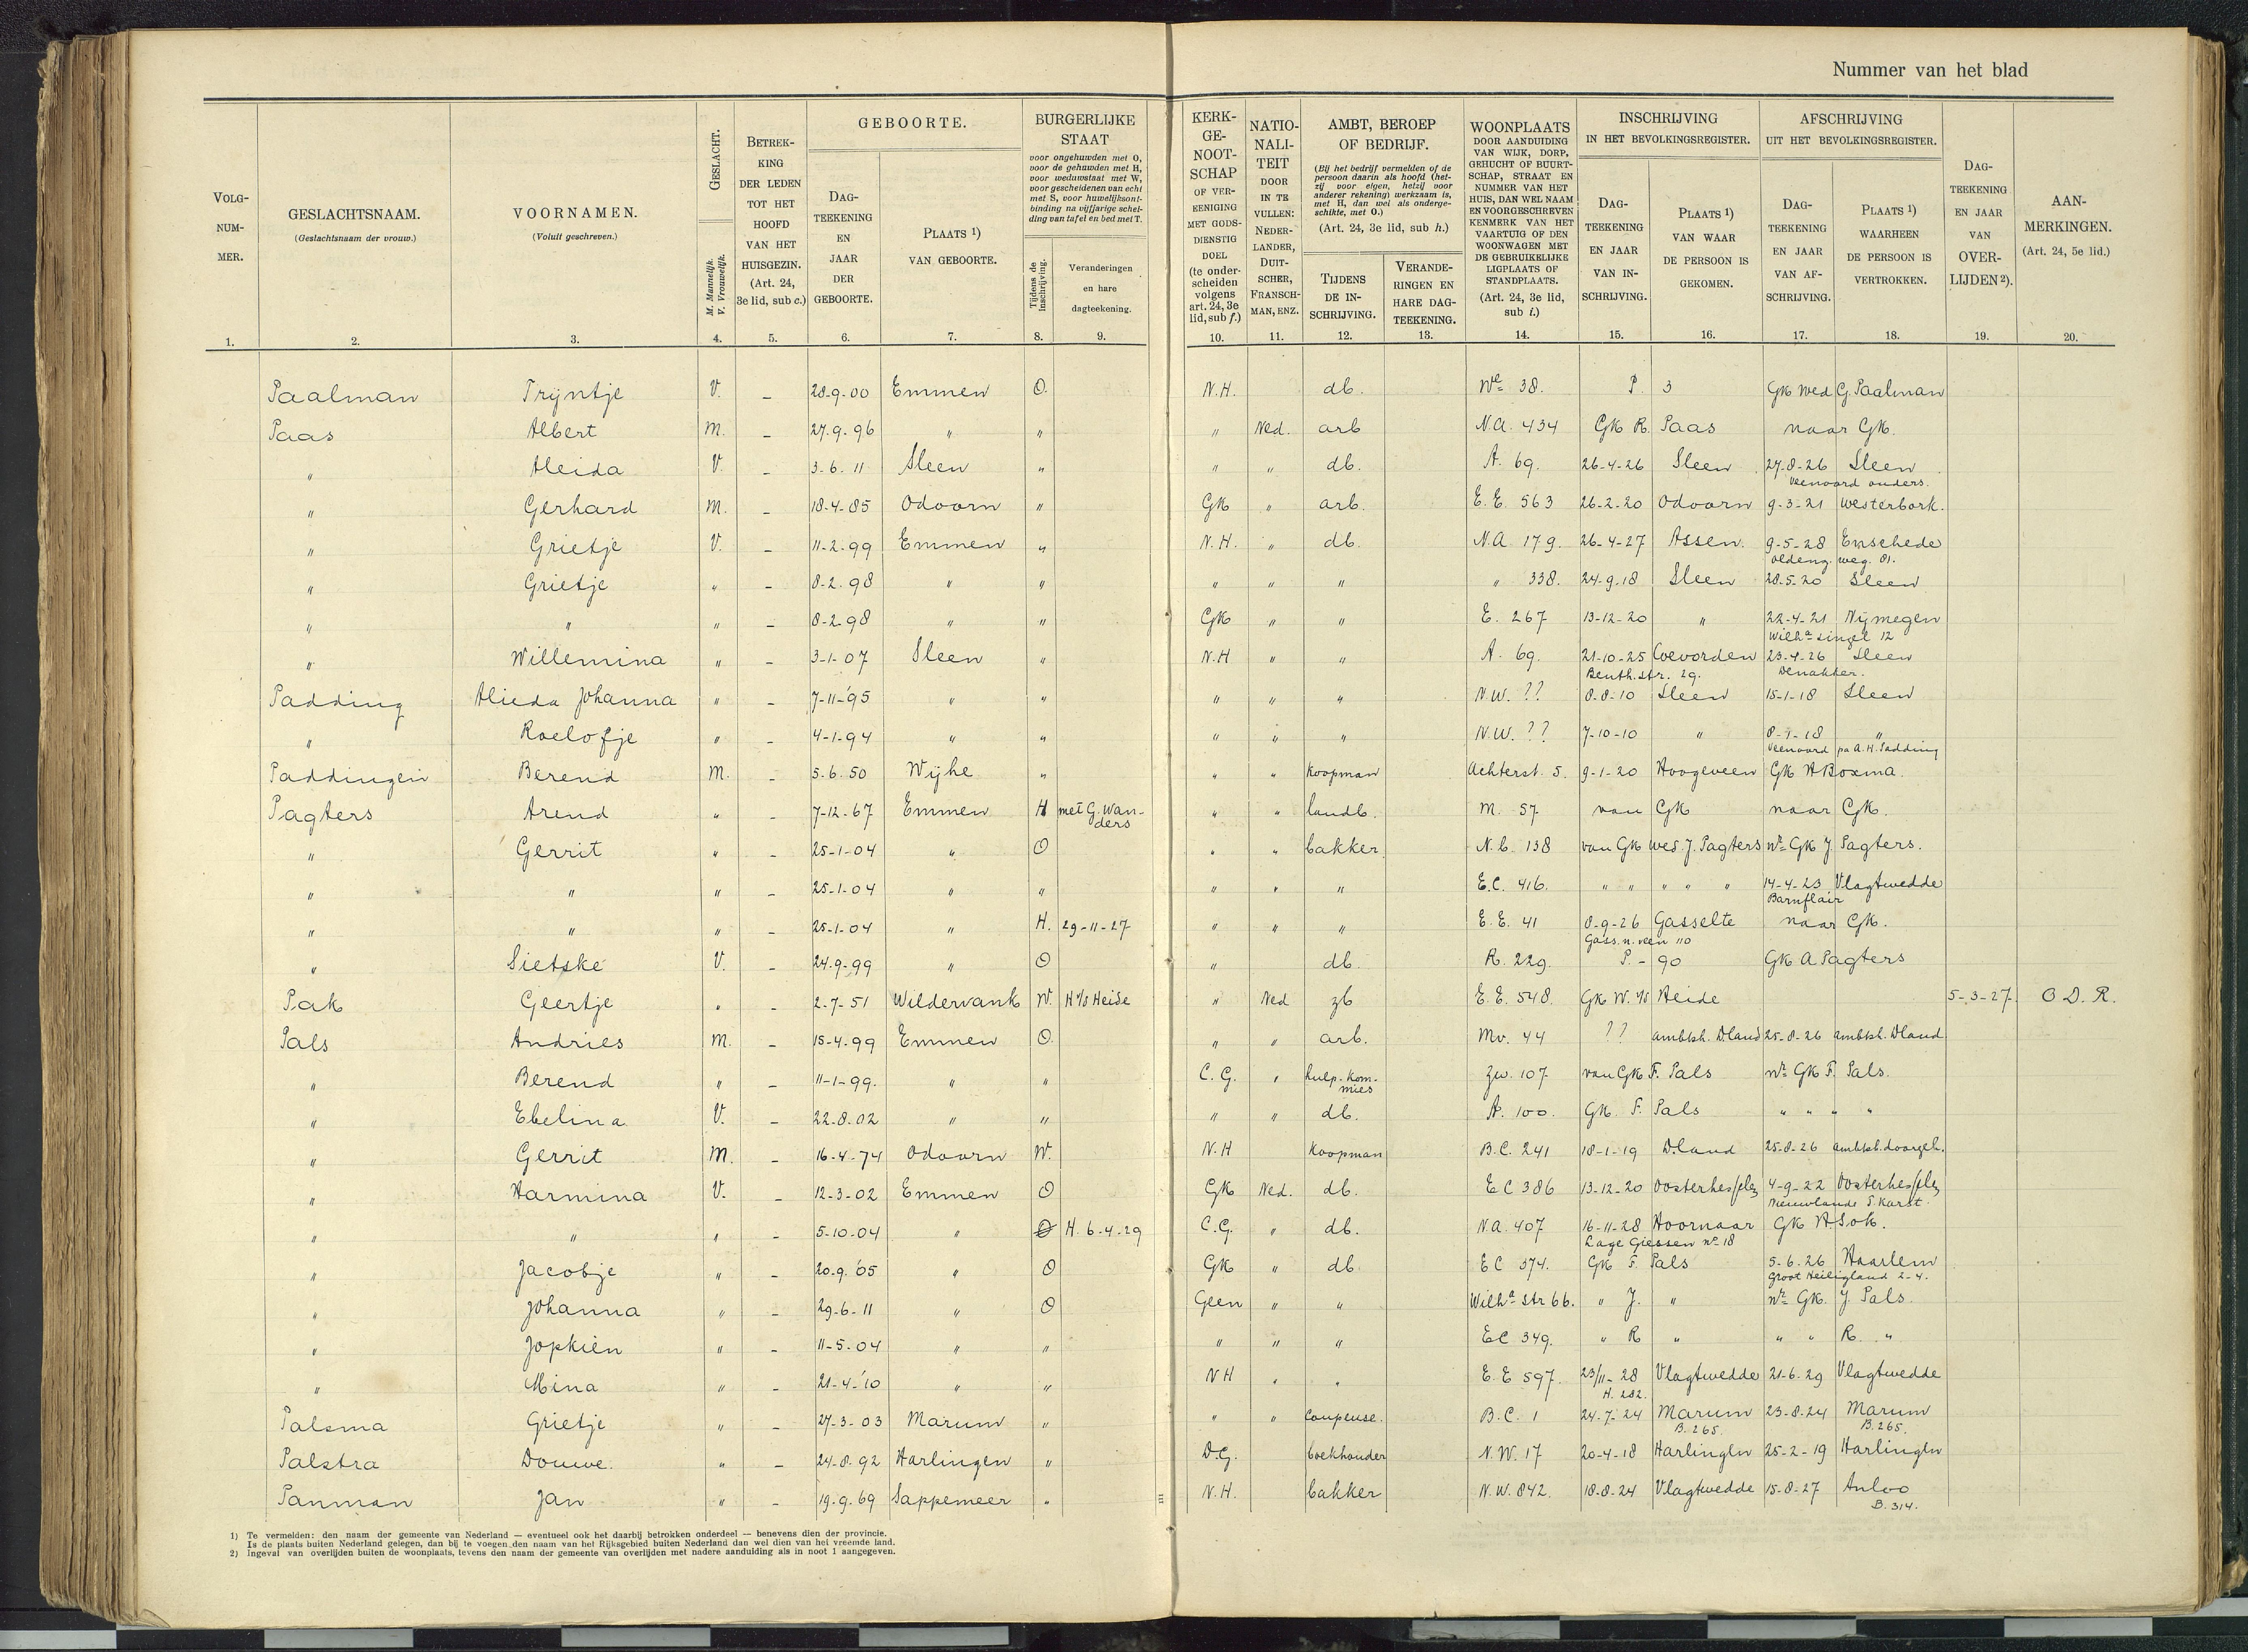 Nummer van het blad
VOLG-NUM-MER. GESLACHTSNAAM. (Geslachtsnaam der vrouw.) VOORNAMEN. (Voluit geschreven.) GESLACHT. M. Mannelijk. V. Vrouwelijk. BETREK-KING DER LEDEN TOT HET HOOFD VAN HET HUISGEZIN. (Art. 24, 3e lid, sub c.) GEBOORTE. DAG-TEEKENING EN JAAR DER GEBOORTE. PLAATS 1) VAN GEBOORTE. BURGERLIJKE STAAT voor ongehuwden met O, voor de gehuwden met H, voor weduwstaat met W, voor gescheidenen van echt met S, voor huwelijksont-binding na vijfjarige schei-ding van tafel en bed met T. Tijdens de inschrijving. Veranderingen en hare dagteekening.
KERK-GE-NOOT-SCHAP OF VER-EENIGING MET GODS-DIENSTIG DOEL (te onder-scheiden volgens art. 24, 3e lid, sub f.) NATIO-NALI-TEIT DOOR IN TE VULLEN: NEDER-LANDER, DUIT-SCHER, FRANSCH-MAN, ENZ. AMBT, BEROEP OF BEDRIJF. (Bij het bedrijf vermelden of de persoon daarin als hoofd (het-zij voor eigen, hetzij voor anderer rekening) werkzaam is, met H, dan wel als onderge-schikte, met O.) (Art. 24, 3e lid, sub h.) TIJDENS DE IN-SCHRIJVING. VERANDE-RINGEN EN HARE DAG-TEEKENING. WOONPLAATS DOOR AANDUIDING VAN WIJK, DORP, GEHUCT OF BUURT-SCHAP, STRAAT EN NUMMER VAN HET HUIS, DAN WEL NAAM EN VOORGESCHREVEN KENMERK VAN HET VAARTUIG OF DEN WOONWAGEN MET DE GEBRUIKELIJKE LIGPLAATS OF STANDPLAATS. (Art. 24, 3e lid, sub i.) INSCHRIJVING IN HET BEVOLKINGSREGISTER. DAG-TEEKENING EN JAAR VAN IN-SCHRIJVING. PLAATS 1) VAN WAAR DE PERSOON IS GEKOMEN. AFSCHRIJVING UIT HET BEVOLKINGSREGISTER. DAG-TEEKENING EN JAAR VAN AF-SCHRIJVING. PLAATS 1) WAARHEEN DE PERSOON IS VERTROKKEN. DAG-TEEKENING EN JAAR VAN OVER-LIJDEN 2). AAN-MERKINGEN. (Art. 24, 5e lid.)
1. 2. 3. 4. 5. 6. 7. 8. 9. 10. 11. 12. 13. 14. 15. 16. 17. 18. 19. 20.
Paalman Trijntje V. - 28-9-00 Emmen O. N.H. db. We 38. P. 3 GK wed G. Paalman
Paas Albert M. - 27-9-96 " " " Ned. arb N.A. 434 GK R. Paas naar GK.
" Aleida V. - 3-6-11 Sleen " " " db. A. 69. 26-4-26 Sleen 27-8-26 Sleen
Veenoord ouders.
" Gerhard M. - 18-4-85 Odoorn " GK " arb. E.E. 563 26-2-20 Odoorn 9-3-21 Westerbork.
" Grietje V. - 11-2-99 Emmen " N.H. " db. N.A. 179. 26-4-27 Assen. 9-5-28 Enschede
oldeng. weg. 81.
" Grietje " - 8-2-98 " " " " " " 338. 24-9-18 Sleen 28-5-20 Sleen
" " " - 8-2-98 " " GK " " E. 267 13-12-20 " 22-4-21 Nijmegen
Wilha singel 12
" Willemina " - 3-1-07 Sleen " N.H " " A. 69. 21-10-25 Coevorden 23-4-26 Sleen
Benth. str. 29. Denakker.
Padding Alieda Johanna " - 7-11-'95 " " " " " N.W. ?? 8-8-10 Sleen 15-1-18 Sleen
" Roelofje " - 4-1-94 " " " " " N.W. ?? 7-10-10 " 8-1-18 "
Veenoord pa A.H. Padding
Paddingen Berend M. - 5-6-50 Wijhe " " " koopman Achterst. 5. 9-1-20 Hoogeveen GK H Boxma.
Pagters Arend " - 7-12-67 Emmen H met G. Wan-ders " " landb. M. 57 van GK naar GK.
" Gerrit " - 25-1-04 " O " " bakker N.b. 138 van GK wed. J. Pagters nr GK J. Pagters.
" " " - 25-1-04 " " " " " E.C. 416. " " " " " 14-4-23 Vlagtwedde
Barnflair
" " " - 25-1-04 " H. 29-11-27 " " " E.E. 41 8-9-26 Gasselte naar GK.
Gass. n. veen 110
" Sietske V. - 24-9-99 " O " db. R. 229. P. - 90 GK A Pagters
Pak Geertje " - 2-7-51 Wildervank W. H v/d Heide " Ned zb E.E. 548. GK W. v/d Heide 5-3-27 O D. R.
Pals Andries M. - 15-4-99 Emmen O. " " arb. Mv. 44 ?? ambtsh. D.land 25-8-26 ambtsh. Dland
" Berend " - 11-1-99. " " C.G. " hulp-kom-mies Zw. 107 van GK F. Pals nr GK F. Pals.
" Ebelina V. - 22-8-02 " " " " db. A. 100. GK. F. Pals " " " "
" Gerrit M. - 16-4-74 Odoorn W. N.H koopman B.C. 241 18-1-19 D.land 25-8-26 ambtsh. doorgeh.
" Harmina V. - 12-3-02 Emmen O GK Ned. db. E C 386 13-12-20 Oosterhesselen 4-9-22 Oosterhesselen
Nieuwlande S. Karst.
" " " - 5-10-04 " O H. 6-4-29 C.G. " db. N.A. 407 16-11-28 Hoornaar GK H. Sok.
Lage Giessen no 18
" Jacobje " - 20-9-'05 " O GK " db. E C 374. GK F. Pals 5-6-26 Haarlem
Groot Heiligland 2-4.
" Johanna " - 29-6-11 " O Geen " " Wilha str 66. " J. " nr GK. J. Pals.
" Jopkien " - 11-5-04 " " " " " E C 349. " R " " " R. "
" Mina " - 21-4-'10 " " NH " " E.E 597. 23/11-28 Vlagtwedde 21-6-29 Vlagtwedde
H. 282.
Palsma Grietje " - 27-3-03 Marum " " " Coupeuse. B.C. 1 24-7-24 Marum 23-8-24 Marum
B. 265. B. 265.
Palstra Douwe. " - 24-8-92 Harlingen " D.G. boekhouder N.W. 17 20-4-18 Harlingen 25-2-19 Harlingen
Panman Jan " - 19-9-69 Sappemeer " N.H. bakker N.W. 842. 18-8-24 Vlagtwedde 15-8-27 Anloo
B. 314.
1) Te vermelden: den naam der gemeente van Nederland — eventueel ook het daarbij betrokken onderdeel — benevens dien der provincie.
Is de plaats buiten Nederland gelegen, dan bij te voegen den naam van het Rijksgebied buiten Nederland dan wel dien van het vreemde land.
2) Ingeval van overlijden buiten de woonplaats, tevens den naam der gemeente van overlijden met nadere aanduiding als in noot 1 aangegeven.